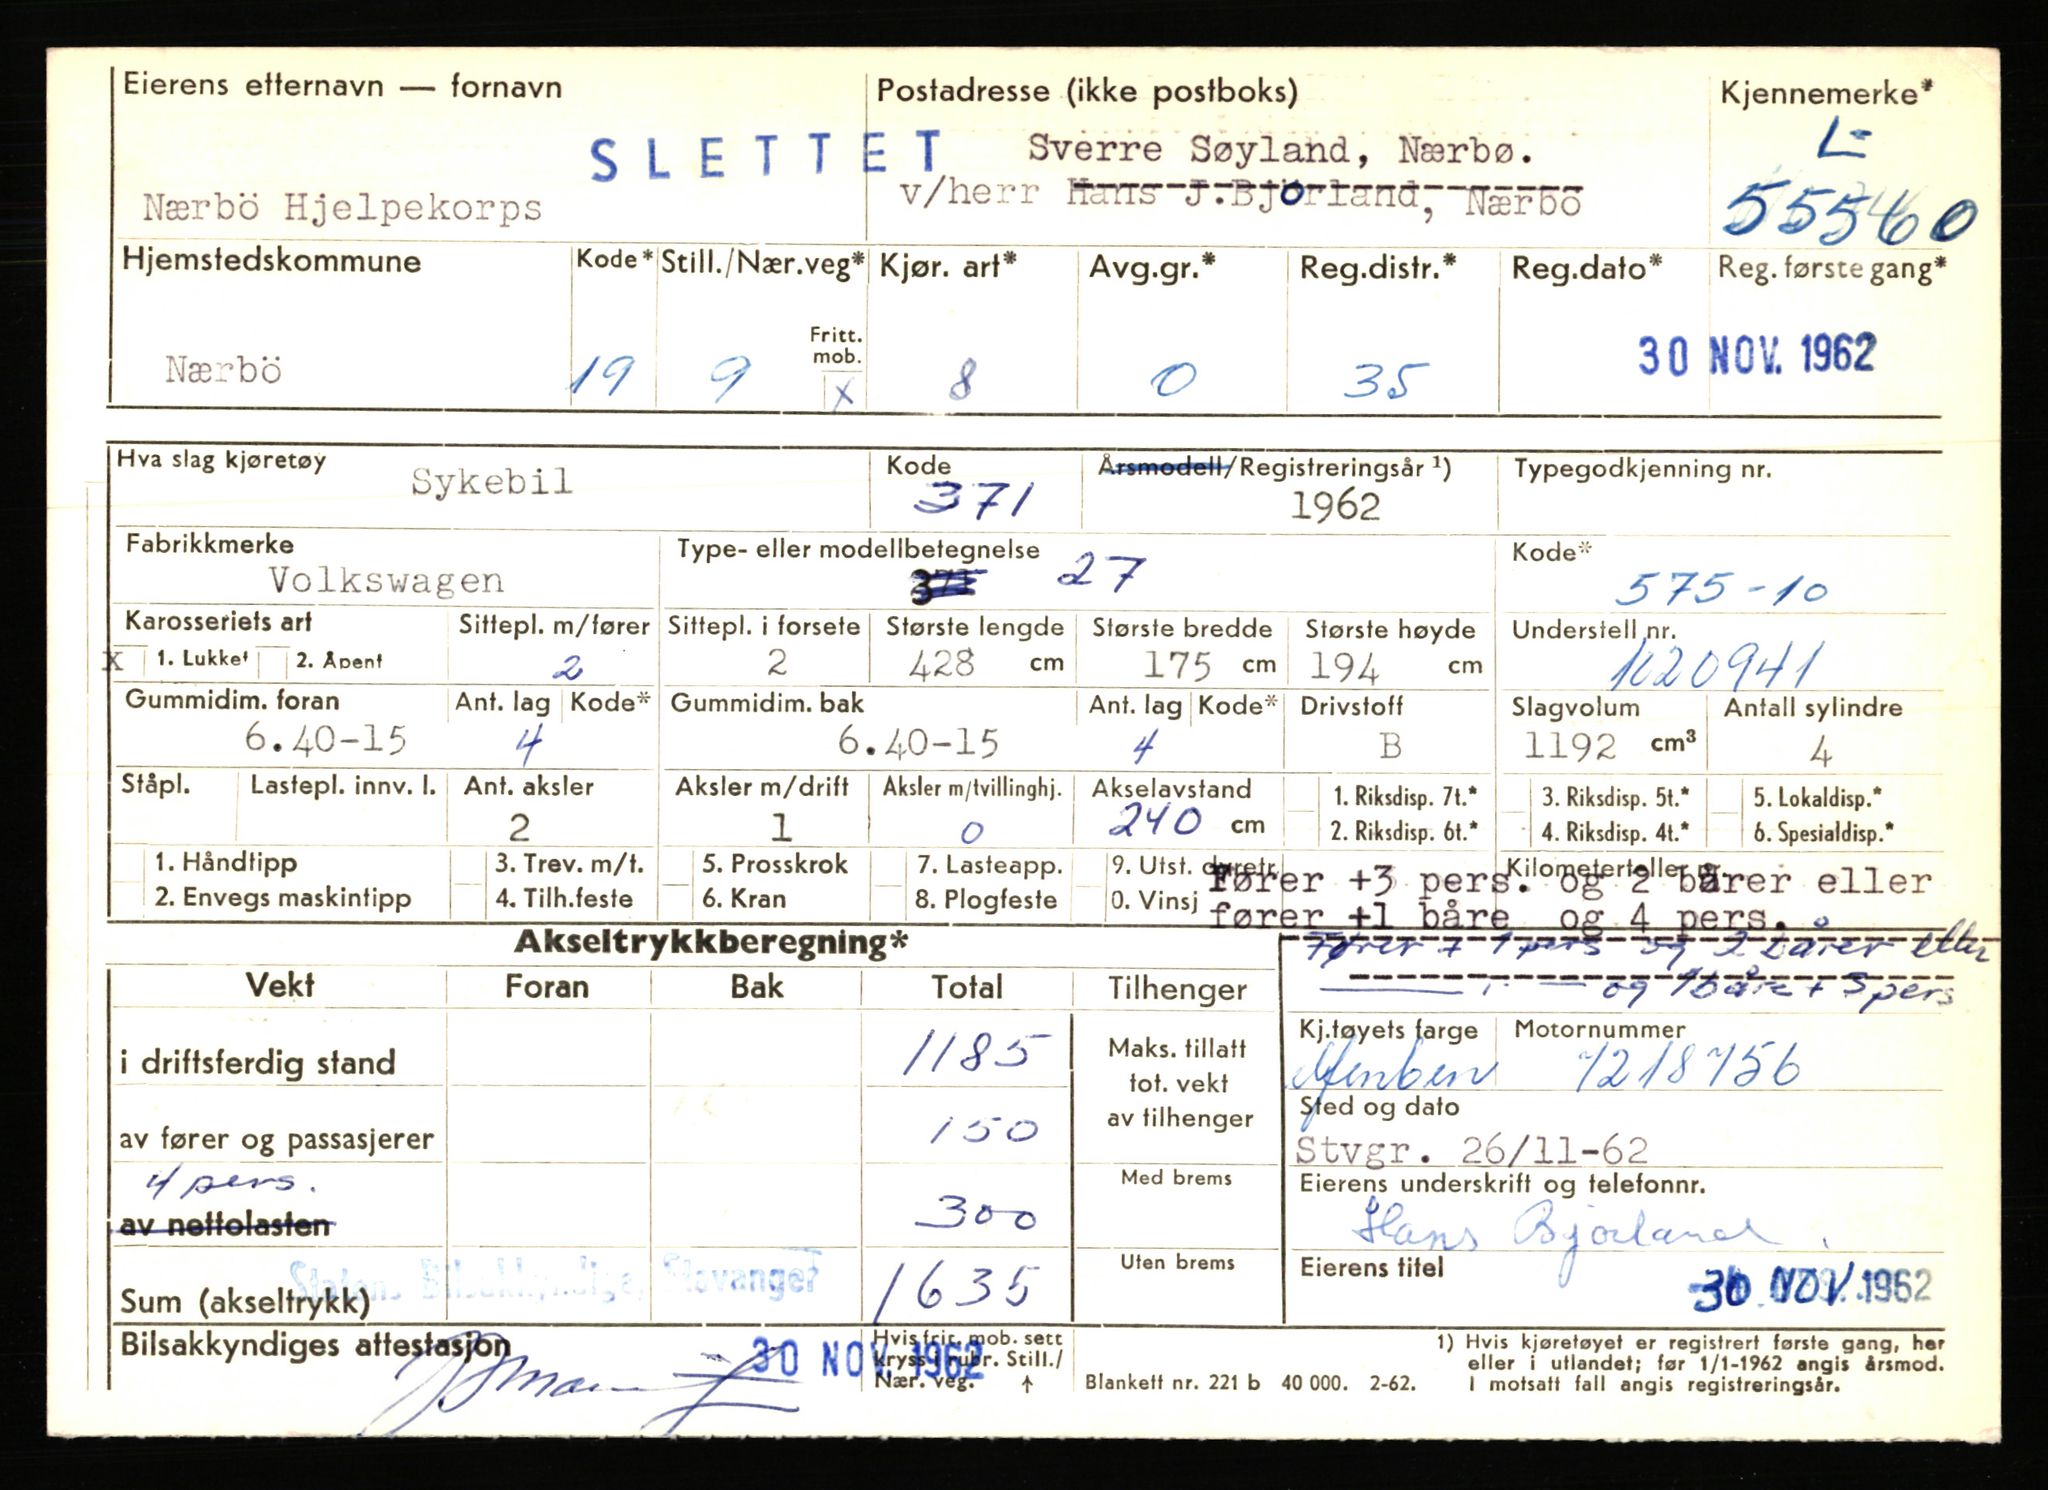 Eierens etternavn — fornavn
Postadresse (ikke postboks)
Kjennemerke*
SLETTET
Sverre Søyland, Nærbø.
L-
Nærbö Hjelpekorps
v/herr Hans J.Björland, Nærbö
55560
Hjemstedskommune
Kode*
Still./Nær.veg*
Kjør. art*
Avg.gr.*
Reg.distr.*
Reg.dato*
Reg. første gang*
Fritt. mob.
Nærbö
19
9
x
8
0
35
30 NOV. 1962
Hva slag kjøretøy
Sykebil
Kode
371
Årsmodell/Registreringsår ¹)
1962
Typegodkjenning nr.
Fabrikkmerke
Volkswagen
Type- eller modellbetegnelse
27
Kode*
575-10
Karosseriets art
Sittepl. m/fører
Sittepl. i forsete
Største lengde
Største bredde
Største høyde
Understell nr.
x 1. Lukket 2. Åpent
2
2
428 cm
175 cm
194 cm
1020941
Gummidim. foran
Ant. lag
Kode*
Gummidim. bak
Ant. lag
Kode*
Drivstoff
Slagvolum
Antall sylindre
6.40-15
4
6.40-15
4
B
1192 cm³
4
Ståpl.
Lastepl. innv. l.
Ant. aksler
Aksler m/drift
Aksler m/tvillinghj.
Akselavstand
1. Riksdisp. 7t.*
3. Riksdisp. 5t.*
5. Lokaldisp.*
2
1
0
240 cm
2. Riksdisp. 6t.*
4. Riksdisp. 4t.*
6. Spesialdisp.*
1. Håndtipp
3. Trev. m/t.
5. Prosskrok
7. Lasteapp.
9. Utst.
Kilometerteller
2. Envegs maskintipp
4. Tilh.feste
6. Kran
8. Plogfeste
0. Vinsj
Fører +3 pers. og 2 bårer eller
fører +1 båre og 4 pers.
Akseltrykkberegning*
Fører + 1 pers og 2 bårer eller
og 1 båre + 3 pers
Vekt
Foran
Bak
Total
Tilhenger
i driftsferdig stand
1185
Maks. tillatt
tot. vekt
av tilhenger
Kj.tøyets farge
Motornummer
7218756
av fører og passasjerer
150
Sted og dato
Stvgr. 26/11-62
4 pers.
av nettolasten
300
Med brems
Eierens underskrift og telefonnr.
Hans Bjorland
Statens Bilsakkyndige, Stavanger
Sum (akseltrykk)
1635
Uten brems
Eierens titel
30 NOV. 1962
Bilsakkyndiges attestasjon
30 NOV. 1962
Hvis frit. mob. sett
kryss i rubr. Still./
Nær. veg. ↑
Blankett nr. 221 b 40 000. 2-62.
1) Hvis kjøretøyet er registrert første gang, her
eller i utlandet; før 1/1-1962 angis årsmod.
I motsatt fall angis registreringsår.